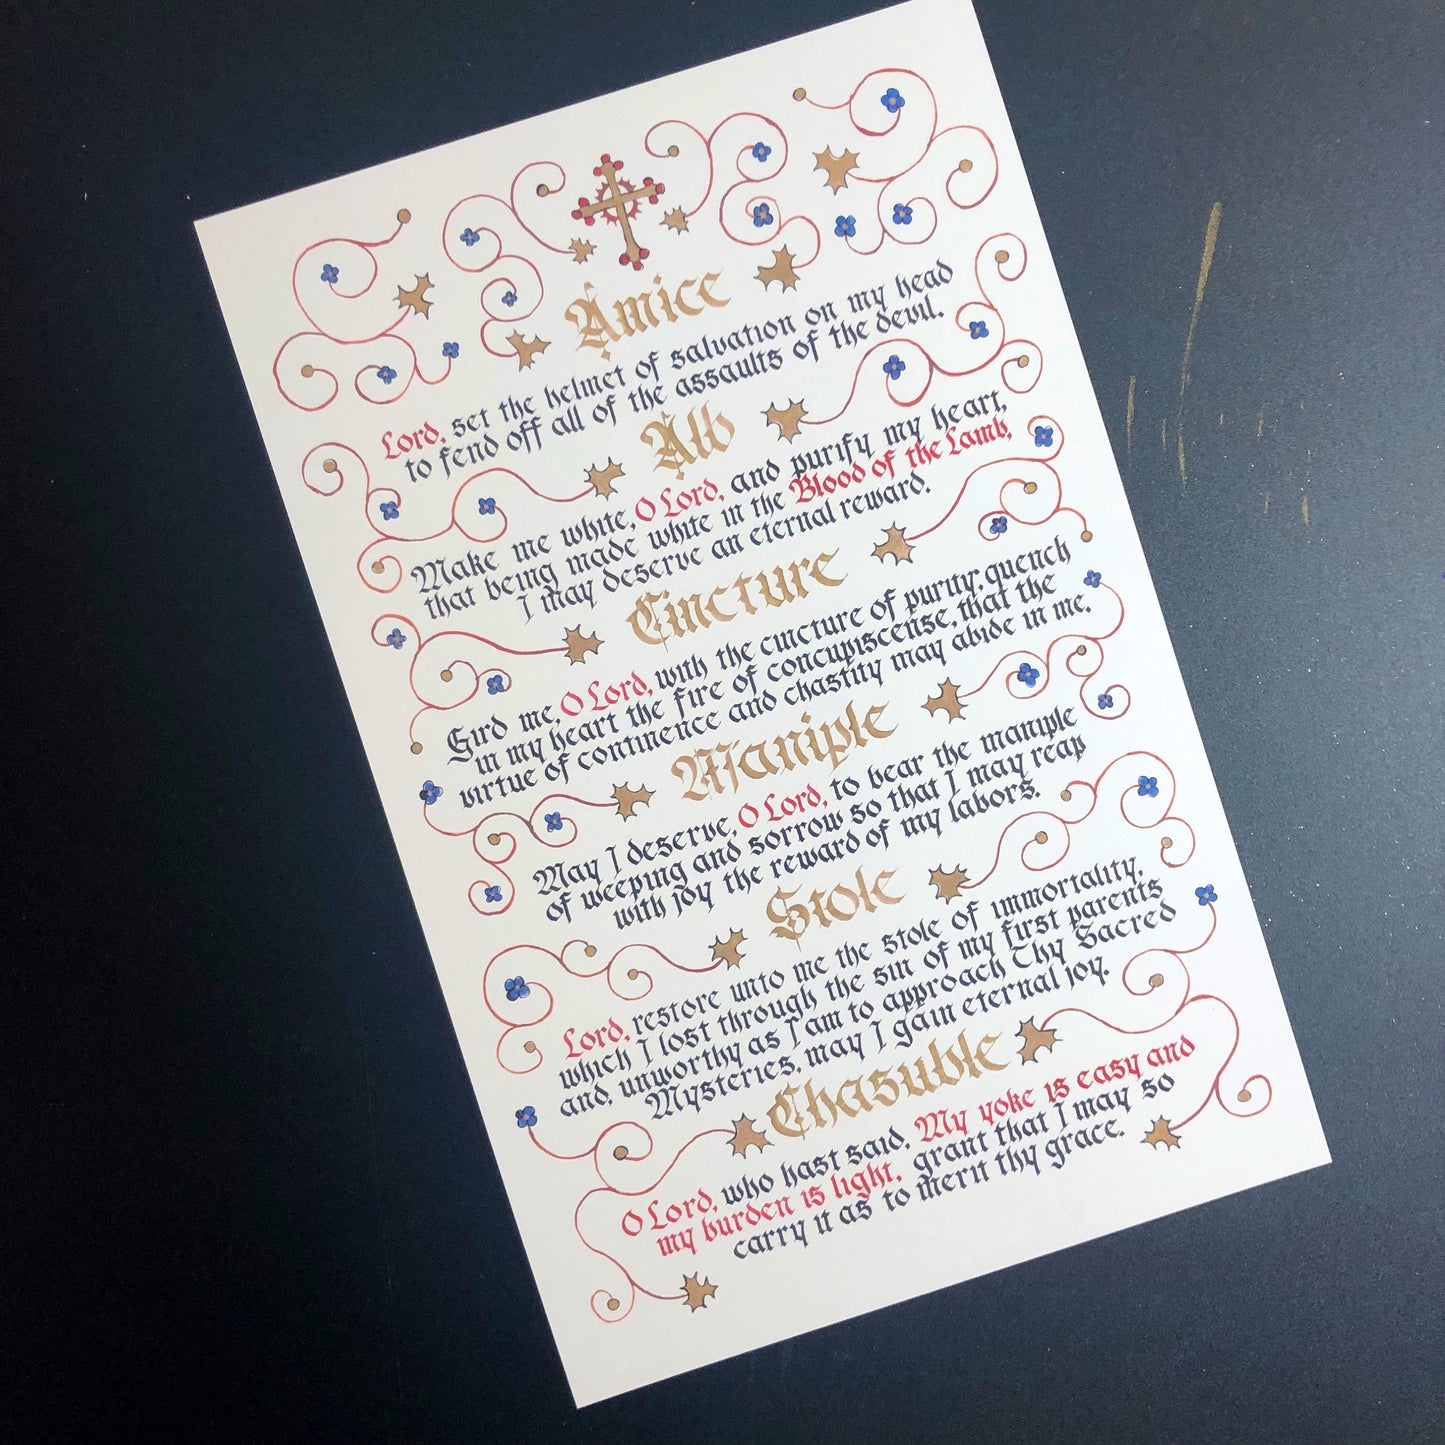 Amice
Lord, set the helmet of salvation on my head
to fend off all of the assaults of the devil.
Alb
Make me white, O Lord, and purify my heart,
that being made white in the Blood of the Lamb,
I may deserve an eternal reward.
Cincture
Gird me, O Lord, with the cincture of purity, quench
in my heart the fire of concupiscense, that the
virtue of continence and chastity may abide in me.
Maniple
May I deserve, O Lord, to bear the maniple
of weeping and sorrow so that I may reap
with joy the reward of my labors.
Stole
Lord, restore unto me the stole of immortality,
which I lost through the sin of my first parents
and, unworthy as I am to approach Thy Sacred
Mysteries, may I gain eternal joy.
Chasuble
O Lord, who hast said, My yoke is easy and
my burden is light, grant that I may so
carry it as to merit thy grace.